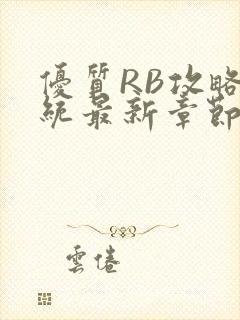 優質RB攻略
統最新章節
雲倦